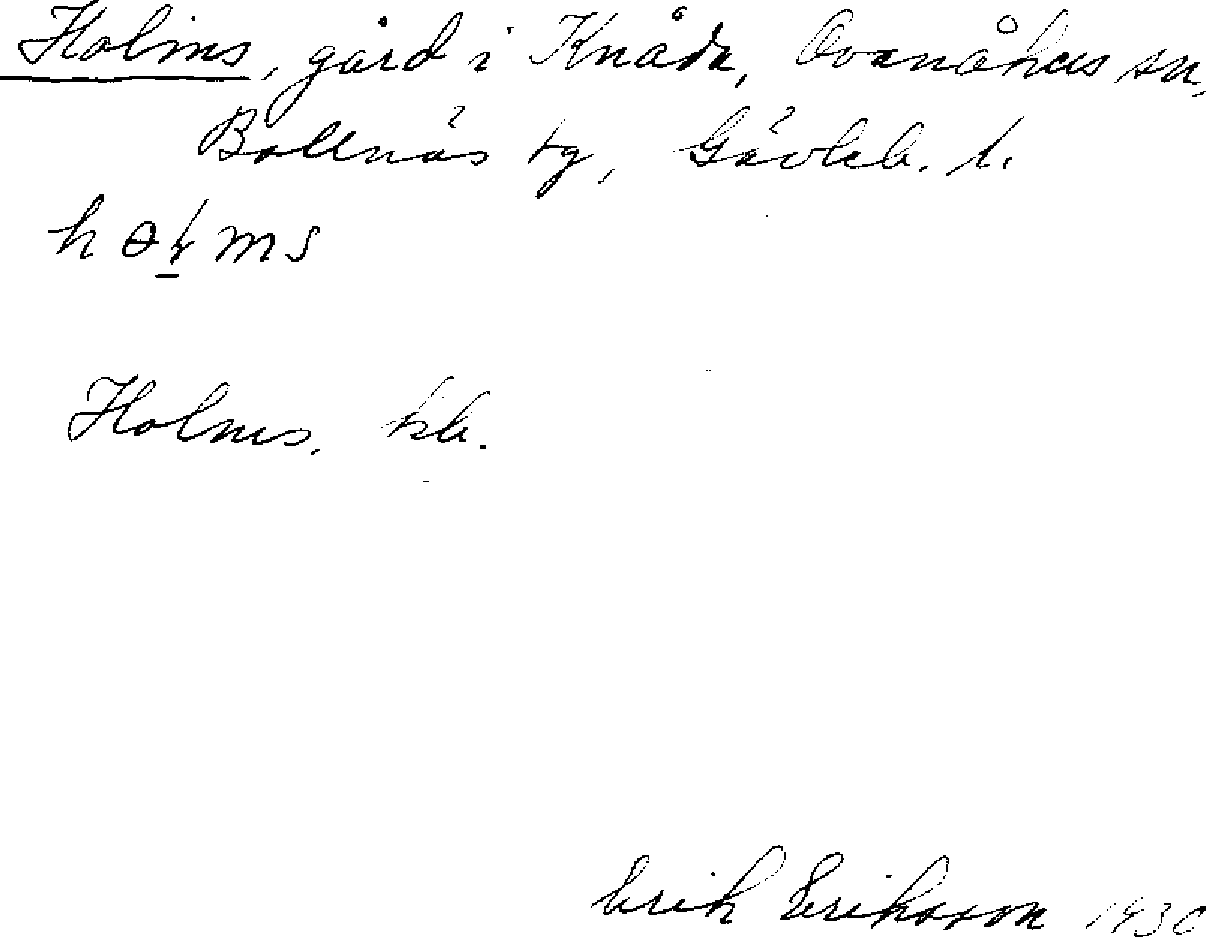 Holms, gård i Knåda, Ovanåkers sn,
Bollnäs tg, Gävleb. l.
Holms. kb.
Erik Eriksson 1930